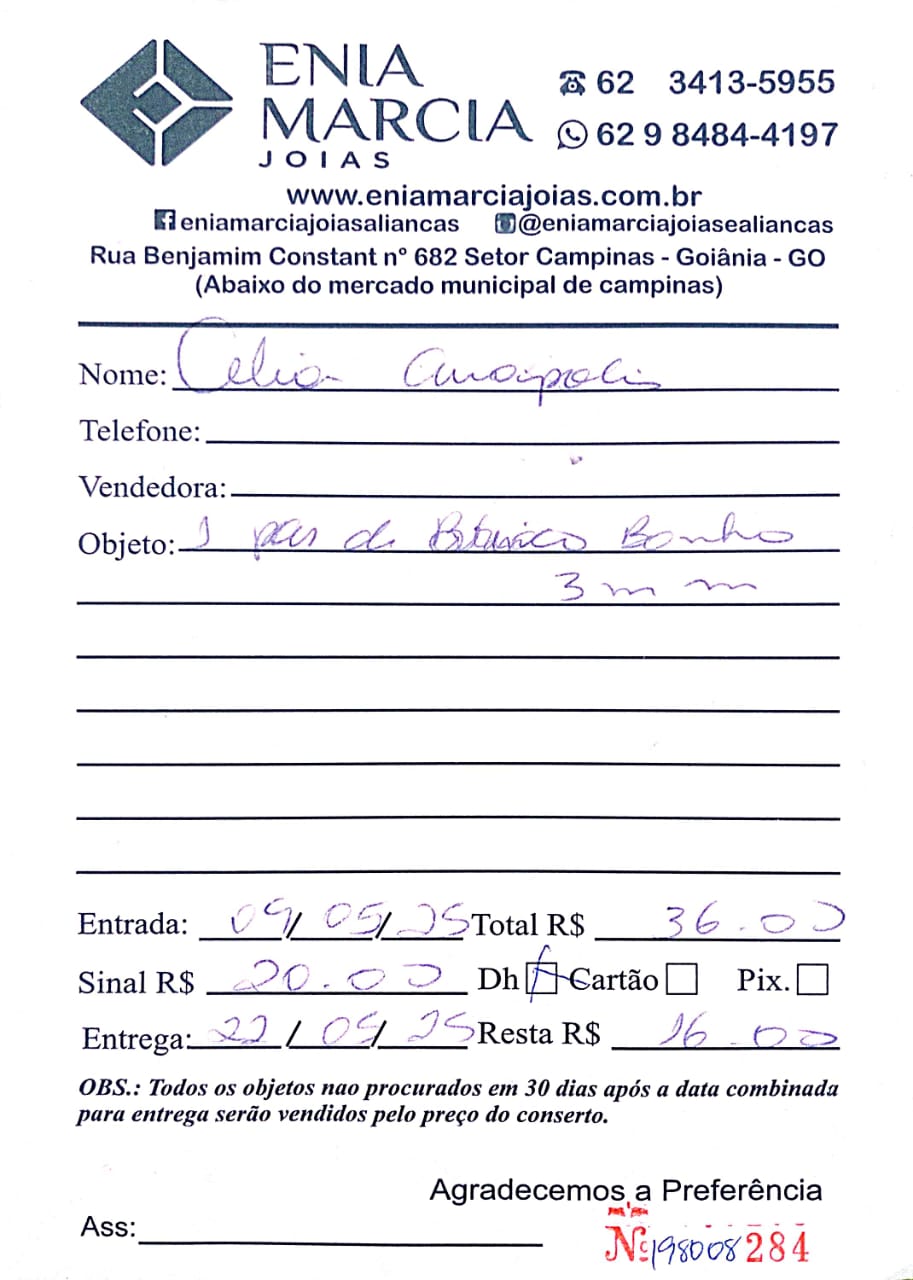 ENIA
MARCIA
JOIAS
62 3413-5955
62 9 8484-4197
www.eniamarciajoias.com.br
eniamarciajoiasaliancas @eniamarciajoiasealiancas
Rua Benjamim Constant nº 682 Setor Campinas - Goiânia - GO
(Abaixo do mercado municipal de campinas)
Nome: Celia
Telefone:
Vendedora:
Objeto: 1 par de Banho
3 mm
Entrada: 09/05/25 Total R$ 36.00
Sinal R$ 20.00 Dh Cartão Pix.
Entrega: 22/05/25 Resta R$ 16.00
OBS.: Todos os objetos nao procurados em 30 dias após a data combinada
para entrega serão vendidos pelo preço do conserto.
Agradecemos a Preferência
Ass:
Nº 198008284